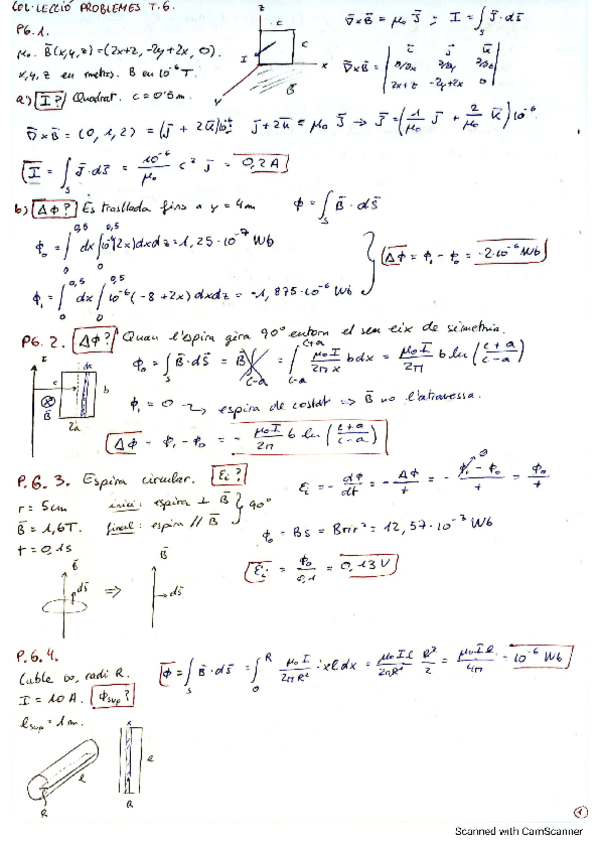 COL·LECCIÓ PROBLEMES T.6.
P6.1.
μ₀. B̄(x,y,z)=(2x+z, -2y+2x, 0).
x,y,z en metres. B en 10⁻⁶T.
a) I? Quadrat. c=0'5m.
z
c
c
I
x
y
B̄
∇̄×B̄ = μ₀ J̄ ; I = ∫_S J̄·ds̄
∇̄×B̄ = | ī j̄ k̄ | ∂/∂x ∂/∂y ∂/∂z | 2x+z -2y+2x 0 |
∇̄×B̄ = (0,1,2) = (j̄ + 2k̄)10⁻⁶ j̄+2k̄ = μ₀ J̄ → J̄ = (1/μ₀ j̄ + 2/μ₀ k̄)10⁻⁶
I = ∫_S J̄·ds̄ = 10⁻⁶/μ₀ c² j̄ = 0,2A
b) ΔΦ? Es trasllada fins a y = 4m φ = ∫_S B̄·ds̄
φ₀ = ∫₀^0,5 dx ∫₀^0,5 10⁻⁶(2x)dxdz = 1,25·10⁻⁷ Wb
φ₁ = ∫₀^0,5 dx ∫₀^0,5 10⁻⁶(-8+2x)dxdz = -1,875·10⁻⁶ Wb
ΔΦ = φ₁ - φ₀ = -2·10⁻⁶ Wb
P6.2. ΔΦ? Quan l'espira gira 90° entorn el seu eix de simetria.
I
dx
c
b
B̄
2a
φ₀ = ∫_S B̄·ds̄ = B = ∫_{c-a}^{c+a} μ₀I/2πx b dx = μ₀I/2π b ln (c+a/c-a)
φ₁ = 0 → espira de costat => B̄ no l'atravessa.
ΔΦ = φ₁-φ₀ = - μ₀I/2π b ln (c+a/c-a)
P.6.3. Espira circular. ε_i?
r = 5cm inici: espira ⊥ B̄
B̄ = 1,6T. final: espira // B̄ } 90°
t = 0,1s
ε_i = - dφ/dt = - Δφ/t = - φ₁-φ₀/t = φ₀/t
φ₀ = BS = Bπr² = 12,57·10⁻³ Wb
ε_i = φ₀/0,1 = 0,13V
B̄
ds̄
=>
B̄
ds̄
P.6.4.
Cable ∞, radi R.
I = 10A. Φsup?
ℓsup = 1m.
Φ = ∫_S B̄·ds̄ = ∫₀^R μ₀I/2πR² · xℓdx = μ₀Iℓ/2πR² R²/2 = μ₀Iℓ/4π = 10⁻⁶ Wb
ℓ
R
x
ℓ
R
1
Scanned with CamScanner